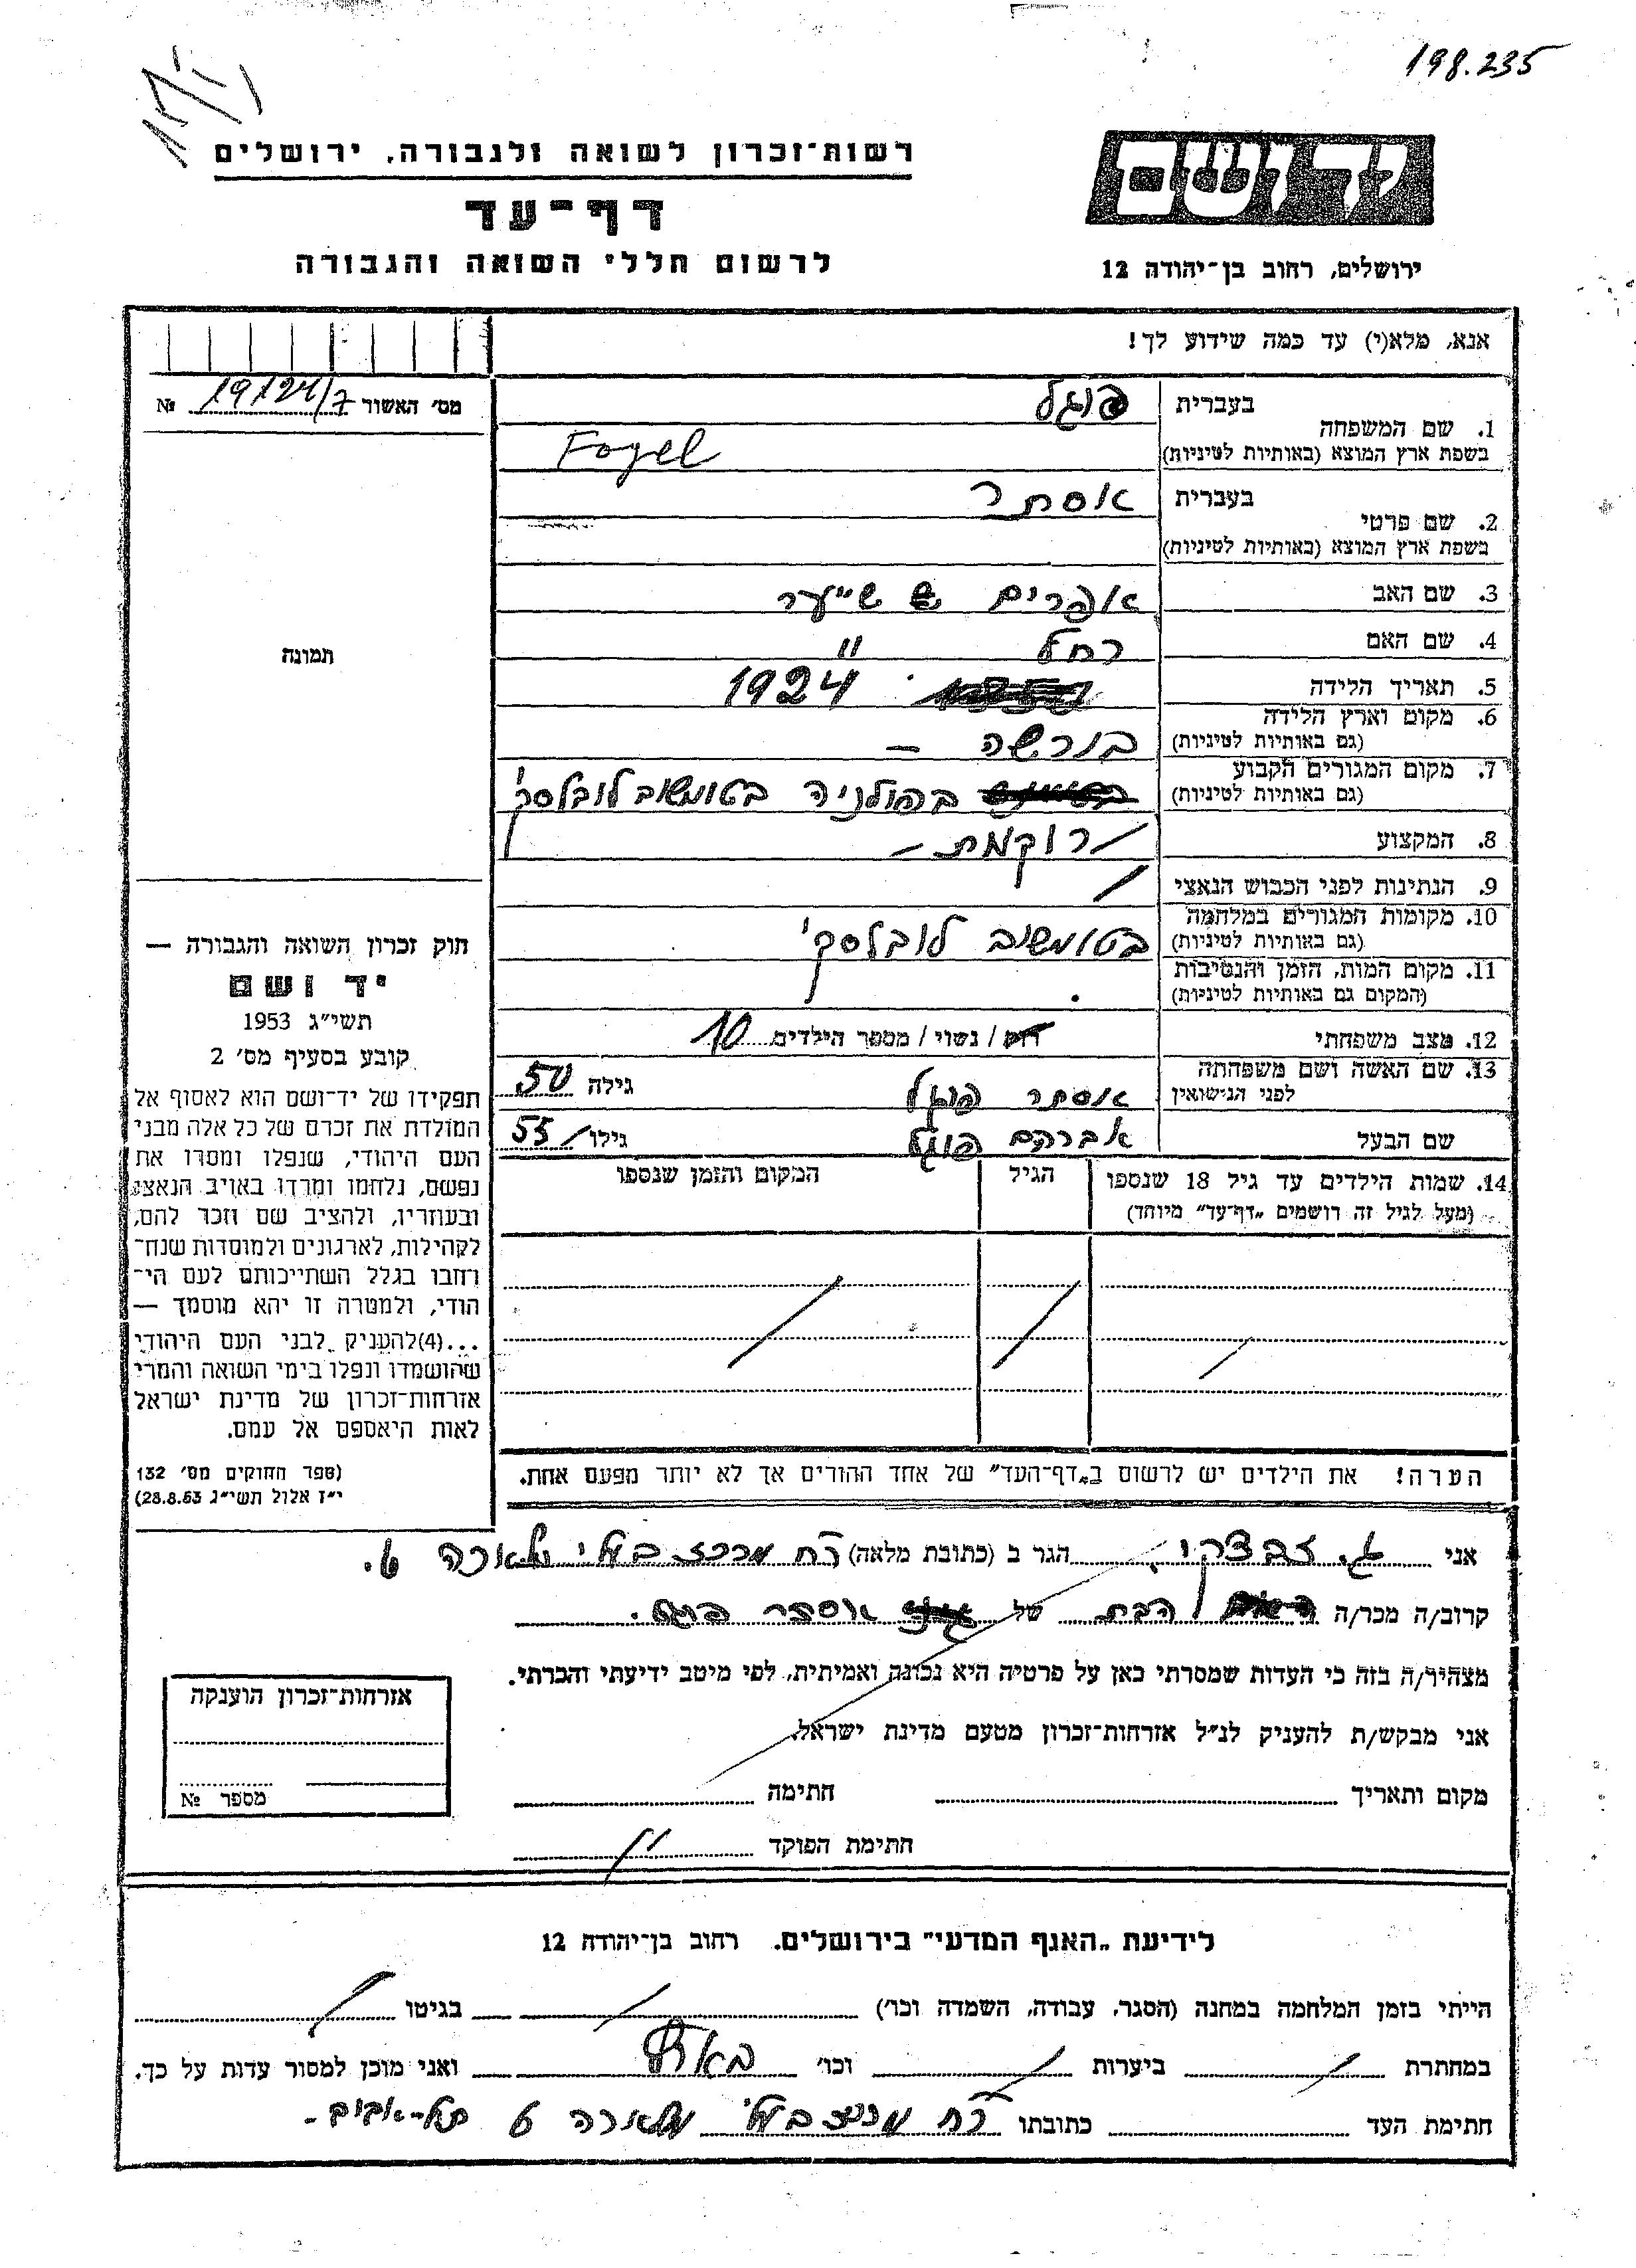 198.235
יד ושם
ירושלים, רחוב בן־יהודה 12
רשות־זכרון לשואה ולגבורה, ירושלים
דף־עד
לרשום חללי השואה והגבורה
אנא, מלא(י) עד כמה שידוע לך!
מס׳ האשור 19124/7 №
1. שם המשפחה בעברית פוגל
בשפת ארץ המוצא (באותיות לטיניות) Fogel
2. שם פרטי בעברית אסתר
בשפת ארץ המוצא (באותיות לטיניות)
3. שם האב אפרים שייער
4. שם האם רחל "
5. תאריך הלידה 1924
6. מקום וארץ הלידה
(גם באותיות לטיניות) בורשה –
7. מקום המגורים הקבוע
(גם באותיות לטיניות) בפולניה בטומשוב לובלסקי
8. המקצוע רוקמת –
9. הנתינות לפני הכבוש הנאצי /
10. מקומות המגורים במלחמה
(גם באותיות לטיניות) בטומשוב לובלסקי
11. מקום המות, הזמן והנסיבות
(המקום גם באותיות לטיניות)
12. מצב משפחתי רוק / נשוי / מספר הילדים 10
13. שם האשה ושם משפחתה
לפני הנישואין אסתר פוגל גילה 50
שם הבעל אברהם פוגל גילו 55
14. שמות הילדים עד גיל 18 שנספו הגיל המקום והזמן שנספו
(מעל לגיל זה רושמים „דף־עד" מיוחד)
הערה! את הילדים יש לרשום ב„דף־העד" של אחד ההורים אך לא יותר מפעם אחת.
תמונה
חוק זכרון השואה והגבורה —
יד ושם
תשי״ג 1953
קובע בסעיף מס׳ 2
תפקידו של יד־ושם הוא לאסוף אל
המולדת את זכרם של כל אלה מבני
העם היהודי, שנפלו ומסרו את
נפשם, נלחמו ומרדו באויב הנאצי
ובעוזריו, ולהציב שם וזכר להם,
לקהילות, לארגונים ולמוסדות שנח־
רחבו בגלל השתייכותם לעם הי־
הודי, ולמטרה זו יהא מוסמך —
...(4)להעניק לבני העם היהודי
שהושמדו ונפלו בימי השואה והמרי
אזרחות־זכרון של מדינת ישראל
לאות היאספם אל עמם.
(ספר החוקים מס׳ 132
י״ז אלול תשי״ג 28.8.53)
אני הגר ב (כתובת מלאה) רח מרכז בעלי מלאכה 6.
קרוב/ה מכר/ה הבת של אסתר פוגל.
מצהיר/ה בזה כי העדות שמסרתי כאן על פרטיה היא נכונה ואמיתית, לפי מיטב ידיעתי והכרתי.
אני מבקש/ת להעניק לנ״ל אזרחות־זכרון מטעם מדינת ישראל.
מקום ותאריך חתימה
חתימת הפוקד
אזרחות־זכרון הוענקה
מספר №
לידיעת „האגף המדעי" בירושלים. רחוב בן־יהודה 12
הייתי בזמן המלחמה במחנה (הסגר, עבודה, השמדה וכו׳) בגיטו
במחתרת ביערות וכו׳ בארץ ואני מוכן למסור עדות על כך.
חתימת העד כתובתו רח מרכז בעלי מלאכה 6 תל-אביב-